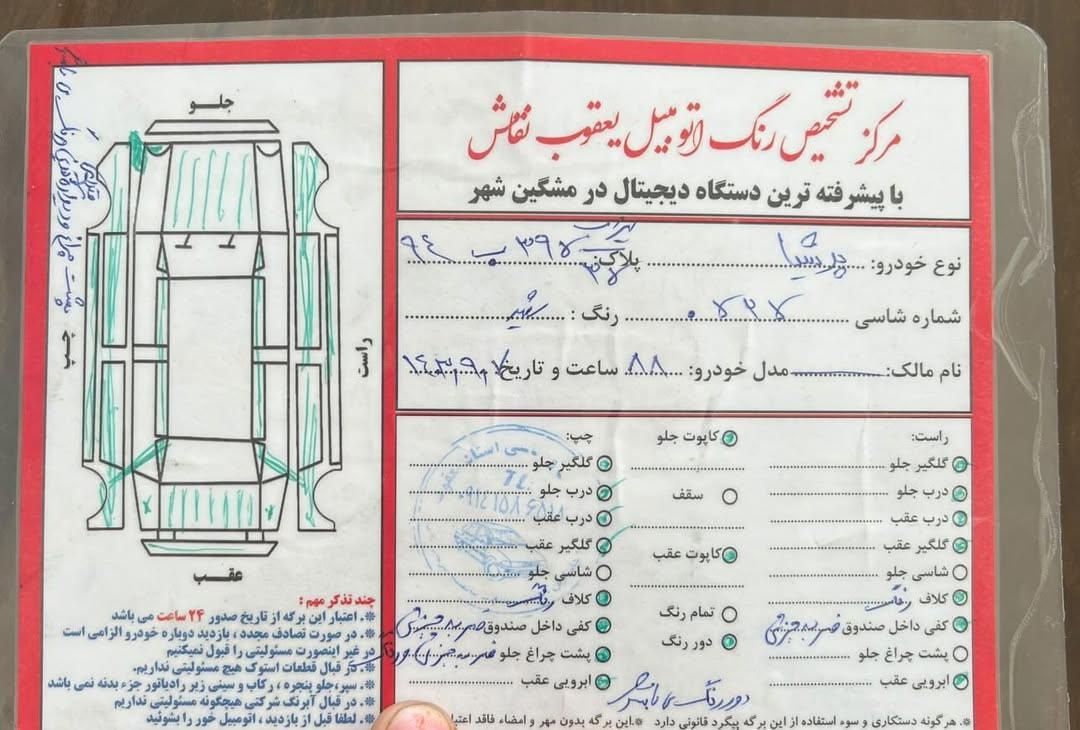 مرکز تشخیص رنگ اتومبیل یعقوب نقاش
با پیشرفته ترین دستگاه دیجیتال در مشگین شهر
نوع خودرو: پرشیا پلاک: ایران ۳۹۸ ب ۹۴
شماره شاسی رنگ : سفید
نام مالک: مدل خودرو: ۸۸ ساعت و تاریخ
جلو
چپ
راست
عقب
راست:
گلگیر جلو
درب جلو
درب عقب
گلگیر عقب
شاسی جلو
کلاف رنگ
کفی داخل صندوق ضربه جزئی
پشت چراغ جلو
ابرویی عقب
کاپوت جلو
سقف
کاپوت عقب
تمام رنگ
دور رنگ
چپ:
گلگیر جلو
درب جلو
درب عقب
گلگیر عقب
شاسی جلو
کلاف رنگ
کفی داخل صندوق ضربه جزئی
پشت چراغ جلو ضربه جزئی و رنگ
ابرویی عقب
دور رنگ می باشد
چند تذکر مهم :
※. اعتبار این برگه از تاریخ صدور ۲۴ ساعت می باشد
※. در صورت تصادف مجدد ، بازدید دوباره خودرو الزامی است
در غیر اینصورت مسئولیتی را قبول نمیکنیم
※. در قبال قطعات استوک هیچ مسئولیتی نداریم.
※. سپر،جلو پنجره ، رکاب و سینی زیر رادیاتور جزء بدنه نمی باشد
※. در قبال آبرنگ شرکتی هیچگونه مسئولیتی نداریم
※. لطفا قبل از بازدید ، اتومبیل خور را بشوئید
※. هرگونه دستکاری و سوء استفاده از این برگه پیگرد قانونی دارد ※.این برگه بدون مهر و امضاء فاقد اعتبار